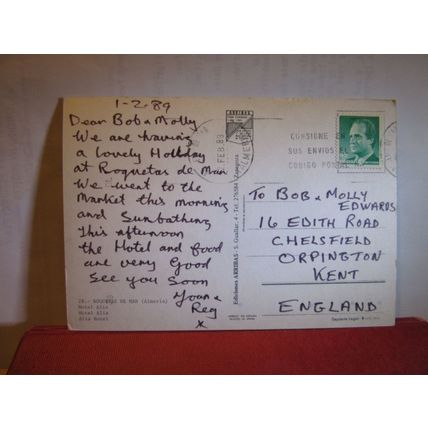 1-2.89
Dear Bob & Molly
We are having
a lovely Holiday
at Roquetas de Mar
We went to the
Market this morning
and Sunbathing
This afternoon
the Hotel and food
are very Good
See you Soon
Joan &
Reg
x
28.- ROQUETAS DE MAR (Almería)
Hotel Alis
Hotel Alis
Alis Hotel
Ediciones ARRIBAS
Zaragoza
FEB 89
ALMERIA
CONSIGNE EN
SUS ENVIOS EL
CODIGO POSTAL
To BOB & MOLLY
EDWARDS
16 EDITH ROAD
CHELSFIELD
ORPINGTON
KENT
ENGLAND